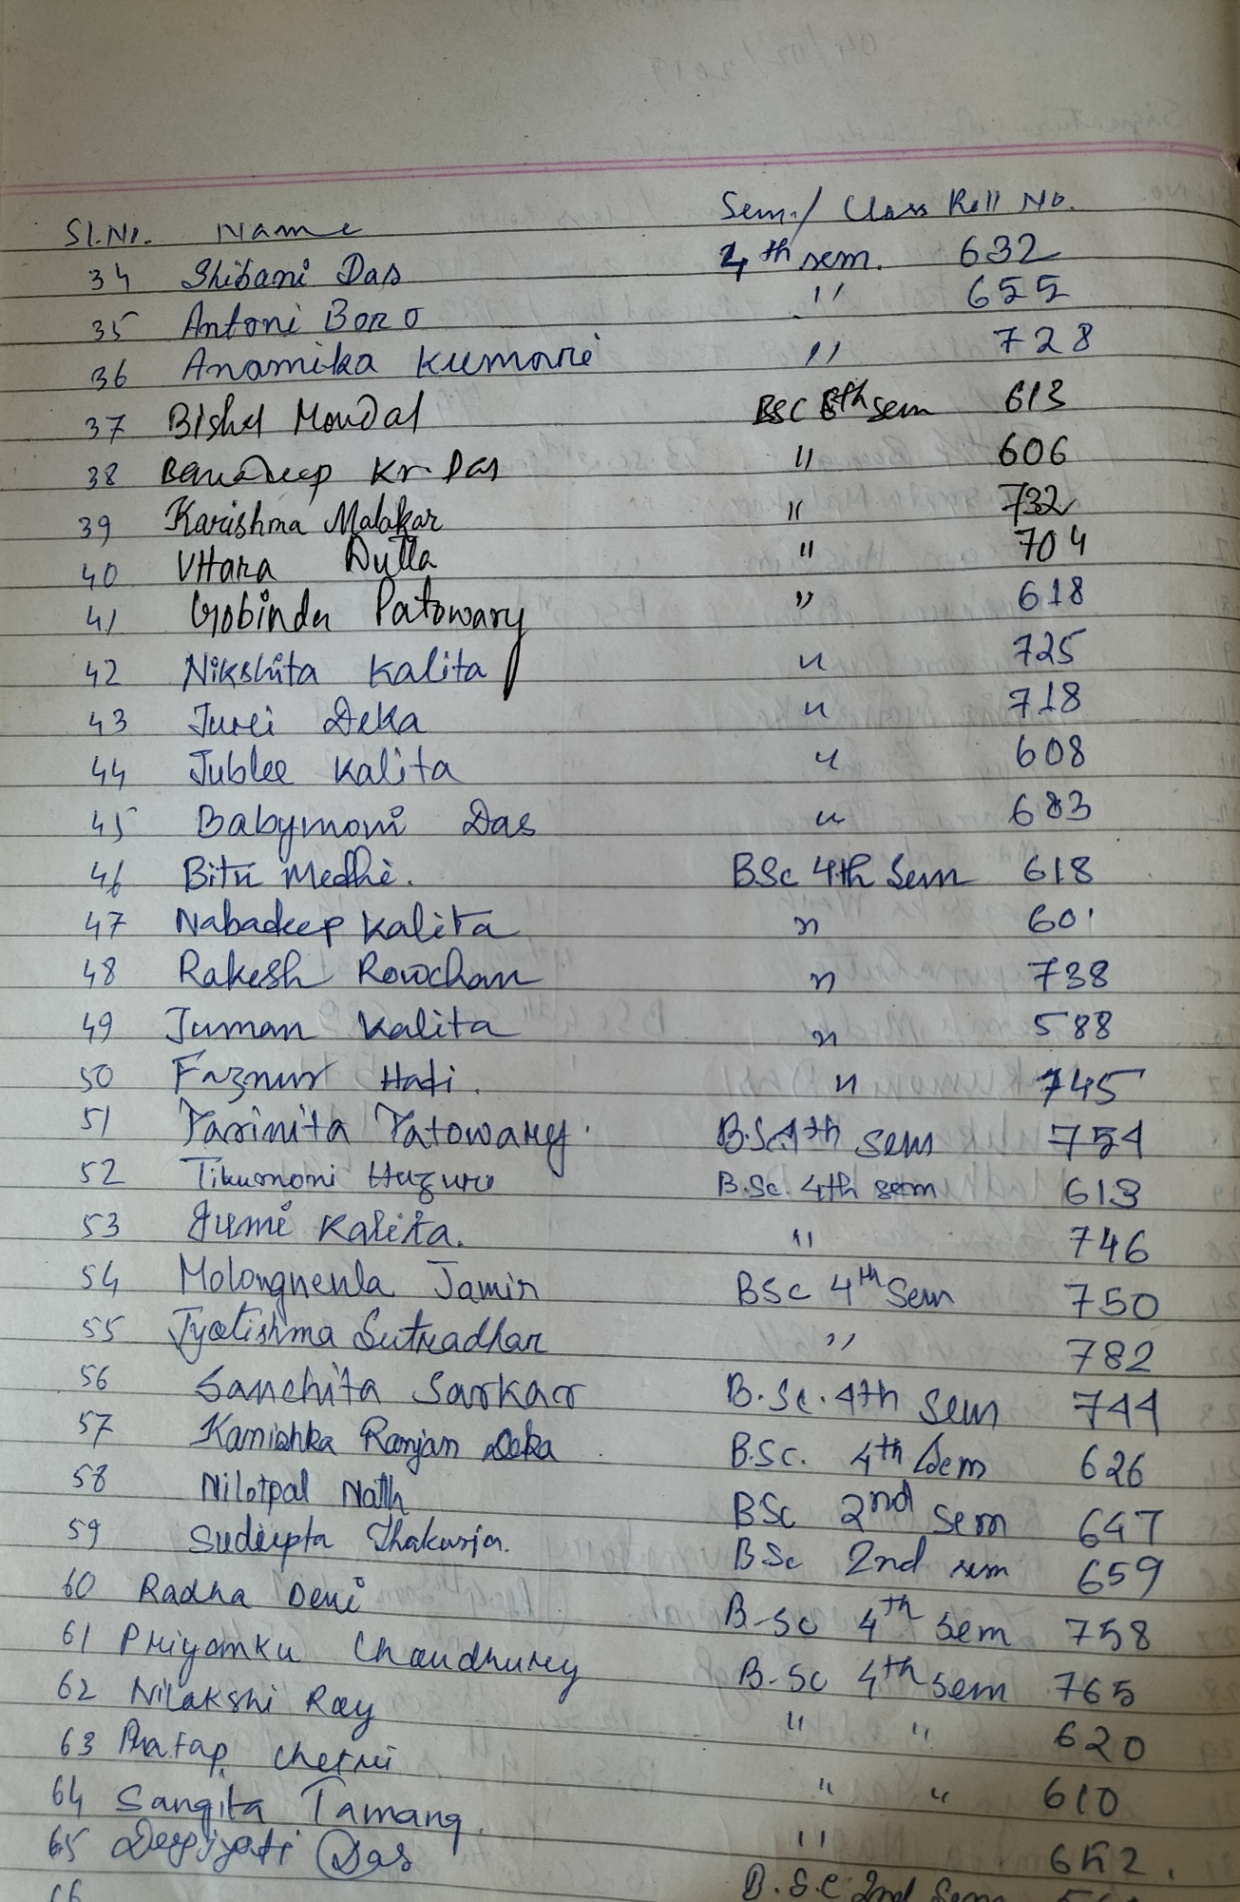 Sl.No. Name Sem./ Class Roll No.
34 Shibani Das 4th sem. 632
35 Antoni Boro " 655
36 Anamika Kumari " 728
37 Bishal Mondal BSC 6th sem 613
38 Kr. Das " 606
39 Karishma Malakar " 732
40 Uttara Dutta " 704
41 Gobinda Patowary " 618
42 Nikshita Kalita " 725
43 Juri Deka " 718
44 Jublee Kalita " 608
45 Babymoni Das " 683
46 Bitu Medhi. BSc 4th Sem 618
47 Nabadeep Kalita " 601
48 Rakesh Rowchan " 738
49 Juman Kalita " 588
50 Faznur Hadi. " 745
51 Parinita Patowary. B.Sc 4th sem 754
52 Tikumoni B.Sc. 4th sem 613
53 Jumi Kalita. " 746
54 Molongnenla Jamir BSC 4th Sem 750
55 Jyotishma Sutradhar " 782
56 Sanchita Sarkar B.Sc. 4th Sem 744
57 Kanishka Ranjan Deka B.Sc. 4th Sem 626
58 Nilotpal Nath BSc 2nd sem 647
59 Sudipta Thakuria. BSc 2nd sem 659
60 Radha Devi B-Sc 4th sem 758
61 Priyanku Chaudhury B-Sc 4th sem 765
62 Nilakshi Ray " " 620
63 Pratap Chetri " " 610
64 Sangita Tamang. " 652.
65 Das B.Sc 2nd Sem
66